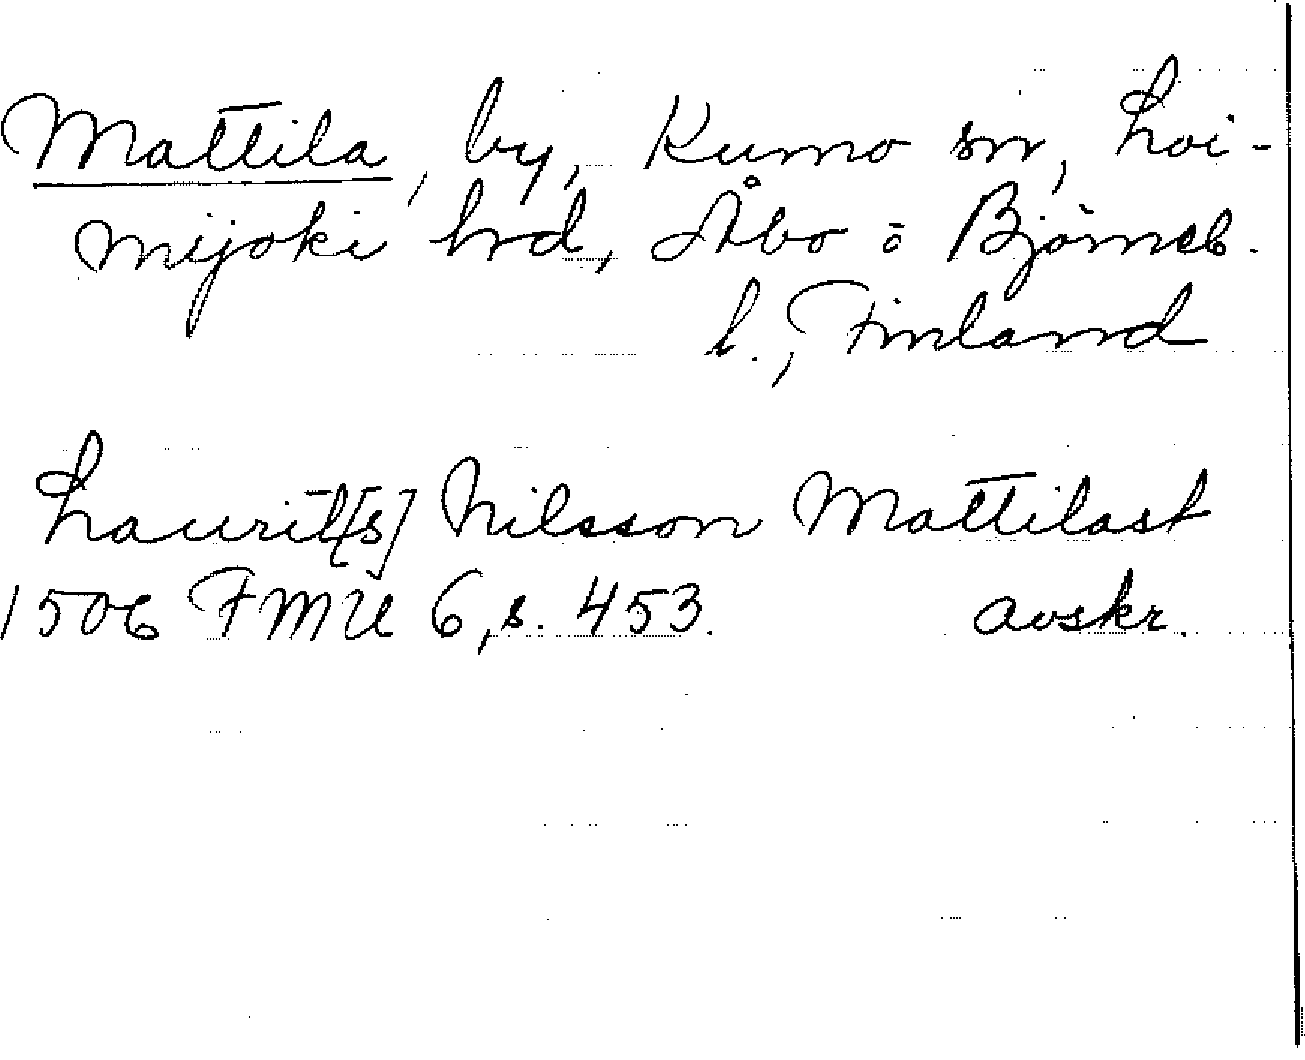 Mattila, by, Kumo sn, Loi-
mijoki hrd, Åbo o Björneb.
l., Finland
Laurit[s] Nilsson Mattilast
1506 FMU 6, s. 453. avskr.